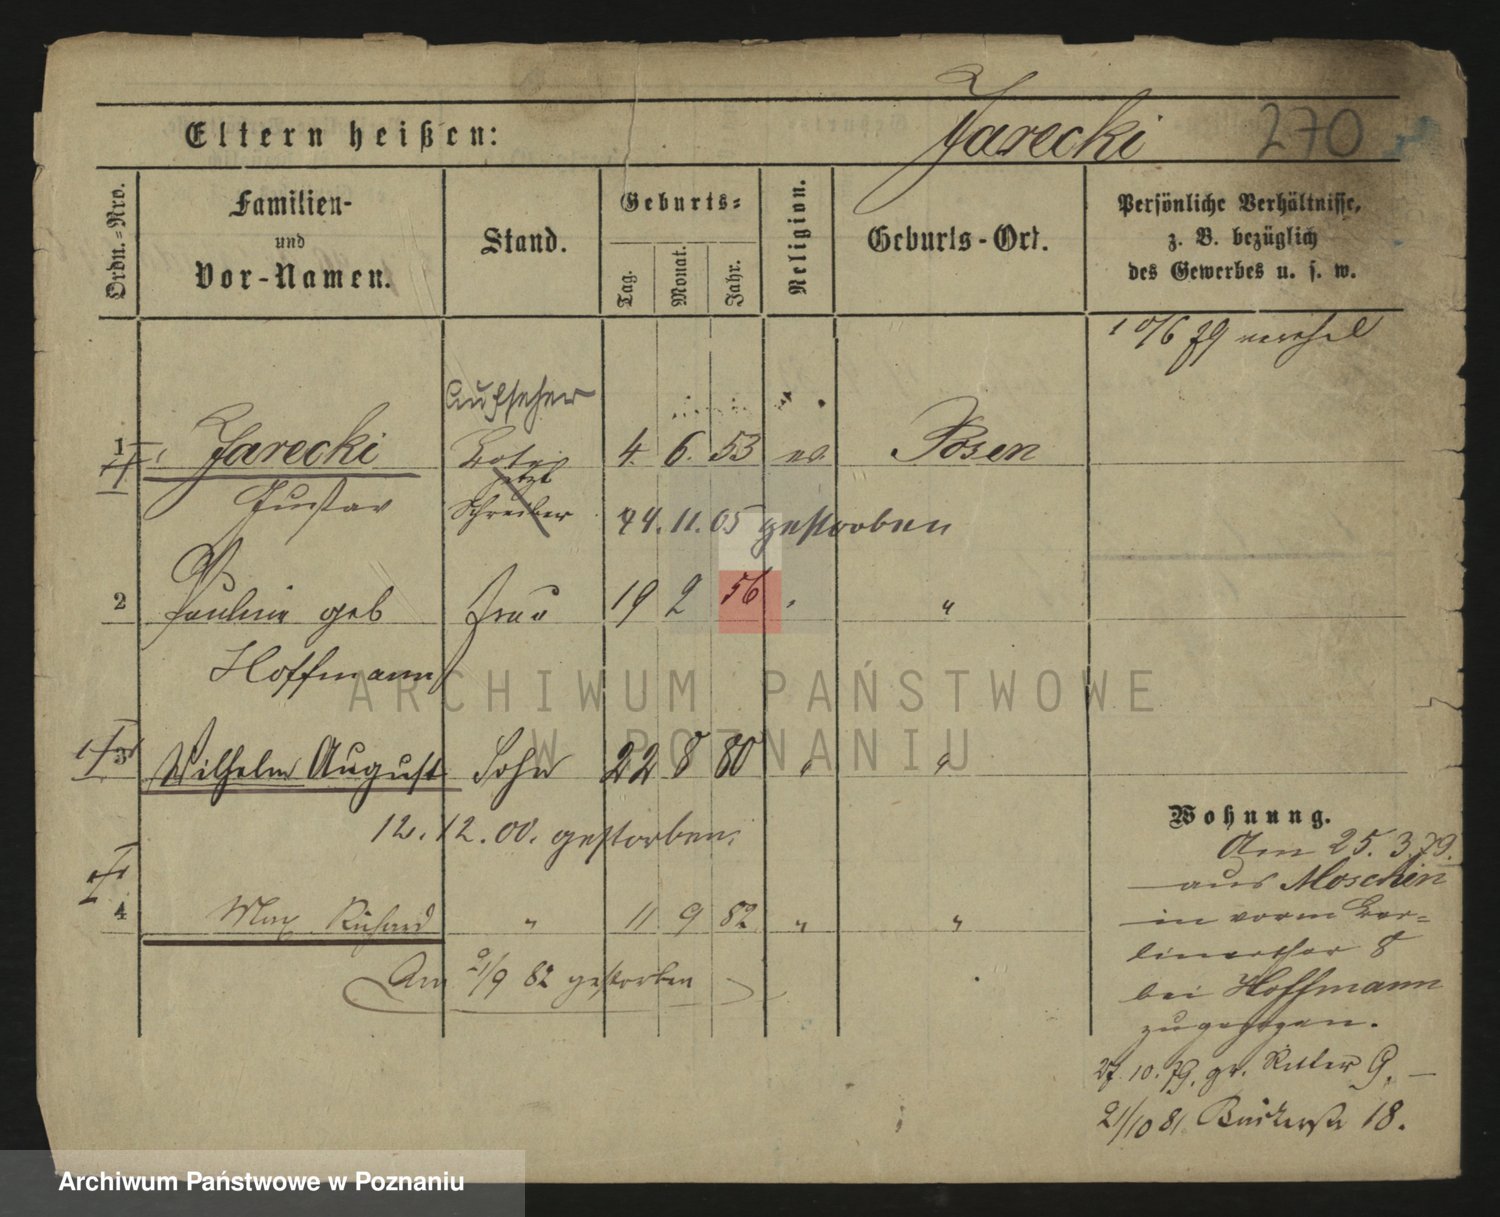 Eltern heißen: Jarecki 270
Ordn.-Nro.
Familien-
und
Vor-Namen.
Stand.
Geburts-
Tag. Monat. Jahr.
Religion.
Geburts-Ort.
Persönliche Verhältnisse,
z. B. bezüglich
des Gewerbes u. s. w.
10/6 79
Aufseher
1 Jarecki Bote 4. 6. 53 ev. Posen
jetzt
Gustav Schreiber 11. 05 gestorben
2 Pauline geb Frau 19 2 56 " "
Hoffmann
3 Wilhelm August Sohn 22 8 80 " "
12. 12. 00. gestorben.
4 Max Richard " 11 9 82 " "
Am 21/9 82 gestorben
Wohnung.
Am 25. 3. 79.
aus Moschin
in vorm Ber=
linerthor 8
bei Hoffmann
zugezogen.
27. 10. 79. gr. Ritter 9.
21/10 81. 18.
ARCHIWUM PAŃSTWOWE
W POZNANIU
Archiwum Państwowe w Poznaniu